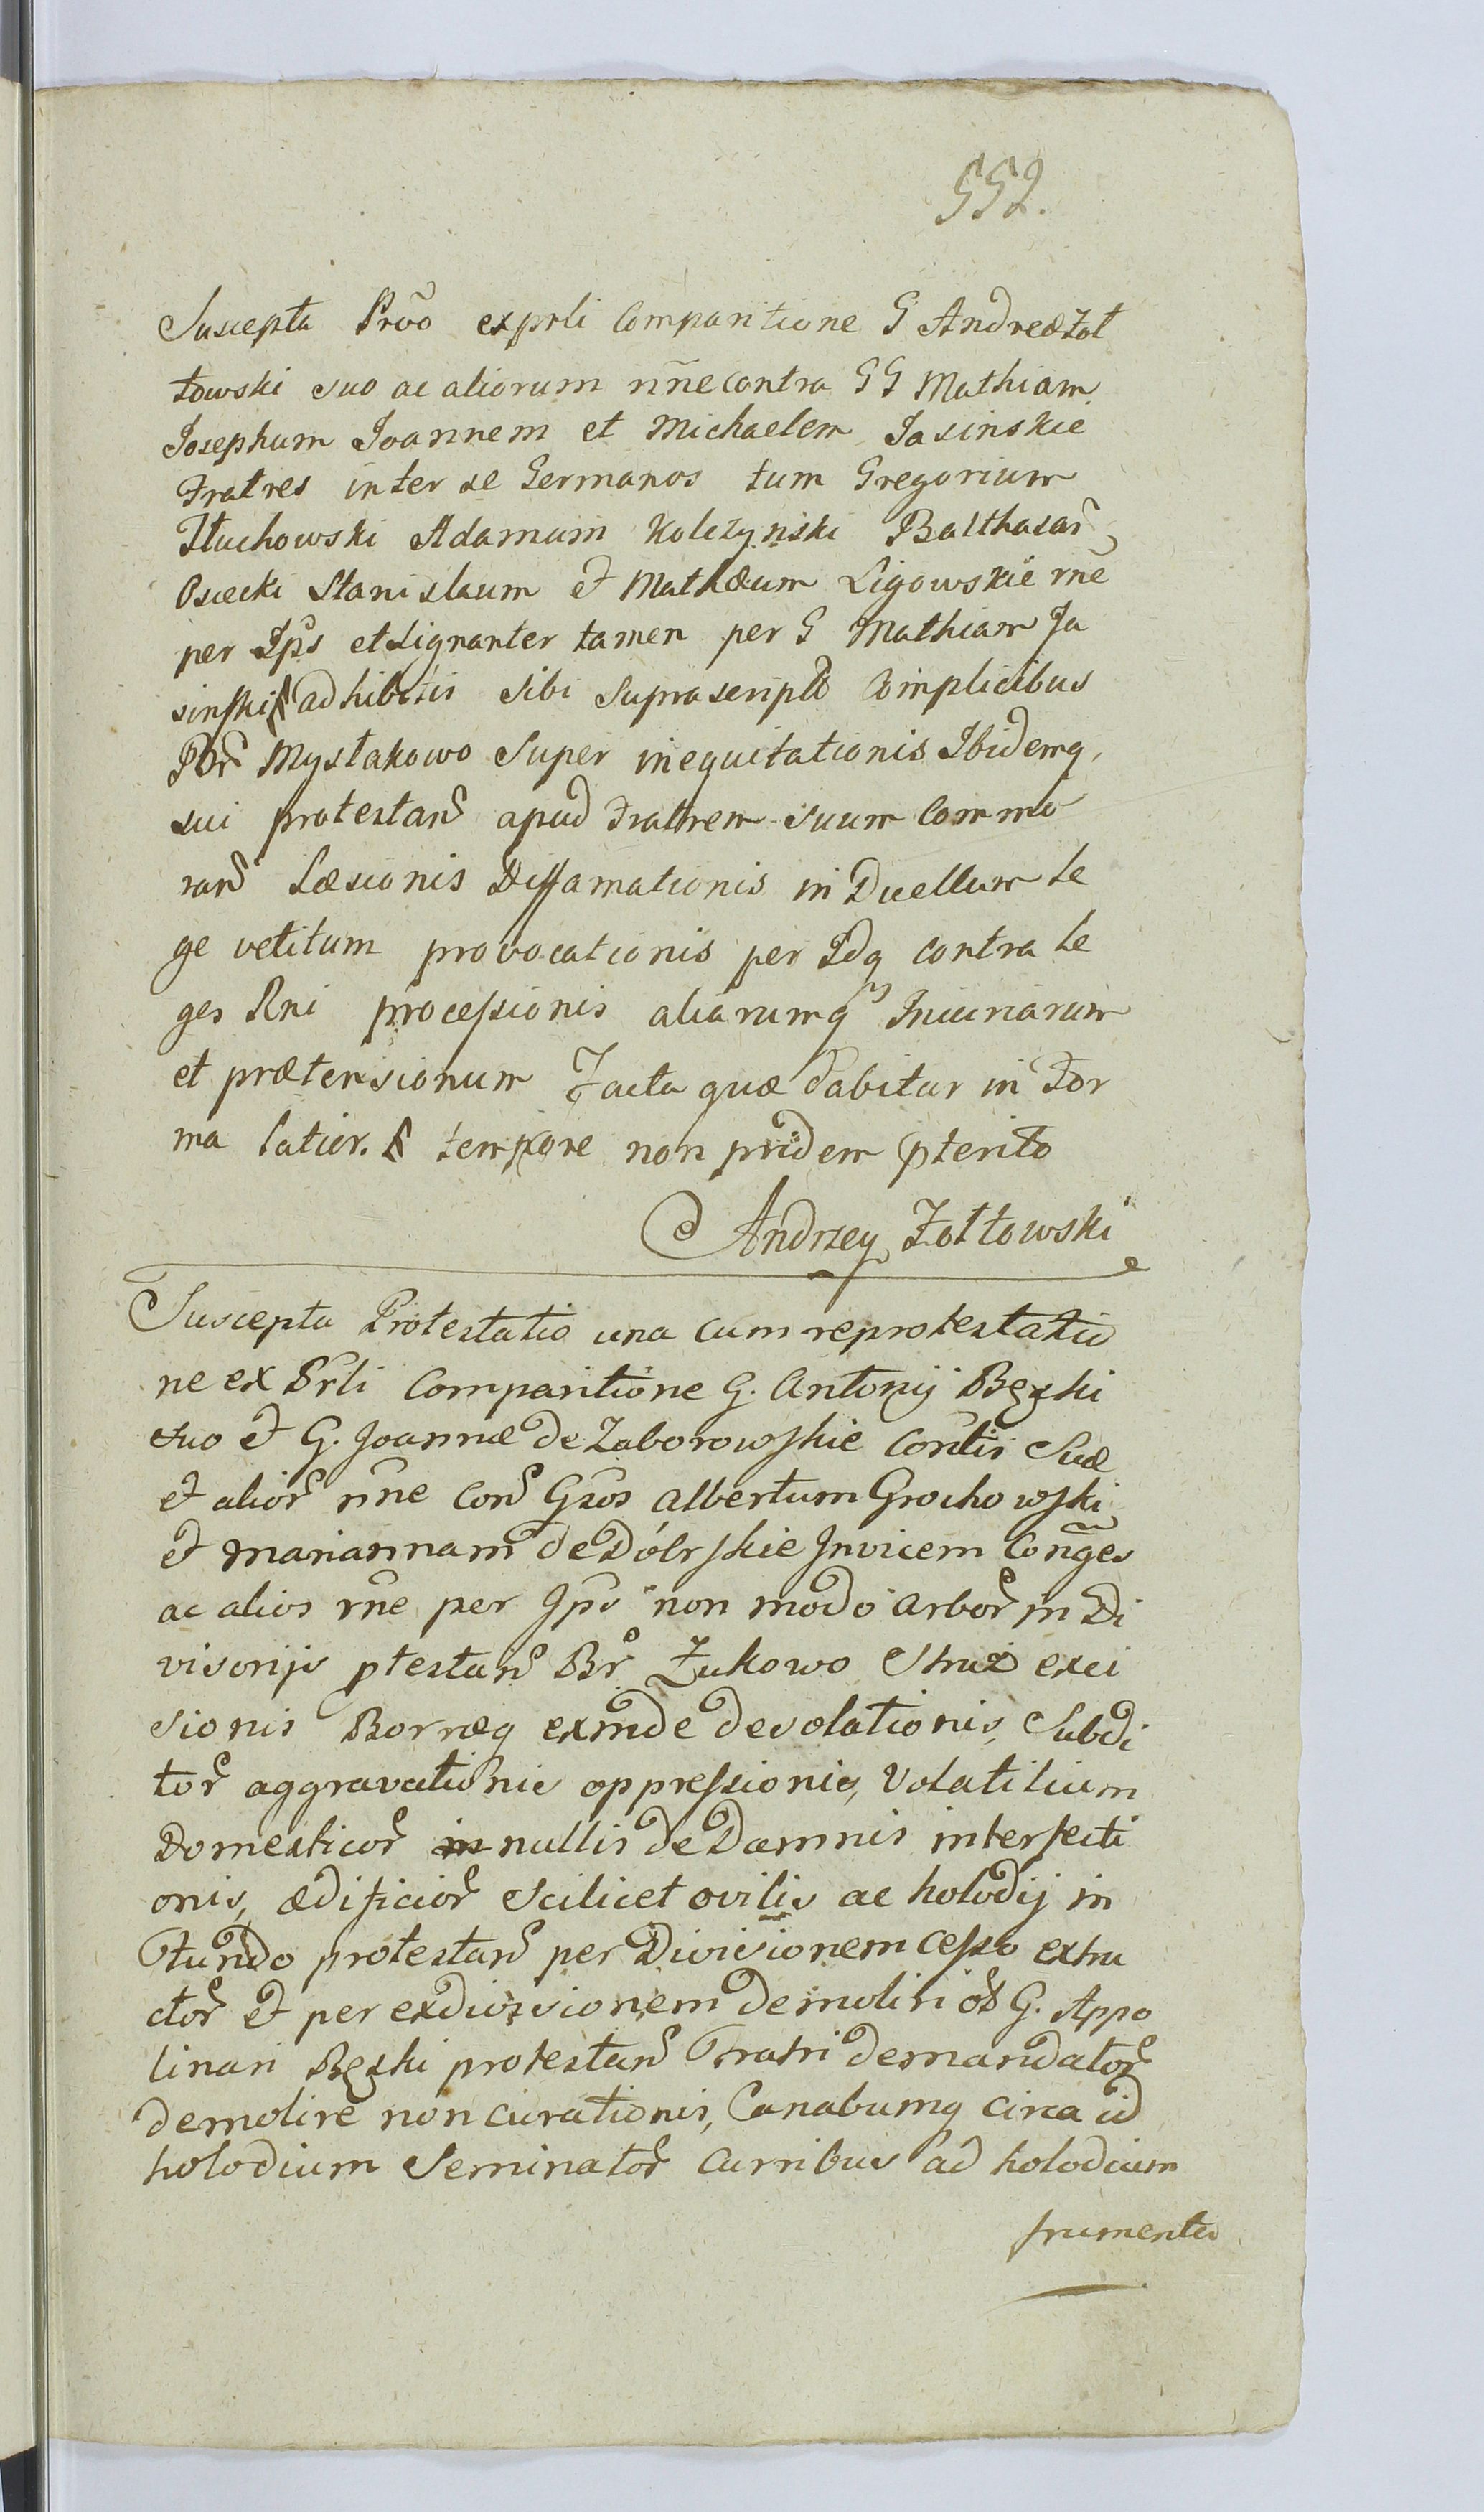 552.
Suscepta Prõo exprli Comparitione G Andreæ Żoł
towski suo ac aliorum nñe contra GG Mathiam
Josephum Joannem et Michaelem Jasinskie
Fratres inter se Germanos tum Gregorium
Tłuchowski Adamum Kolczynski Balthasar
Osiecki Stanislaum et Mathæum Ligowskie rñe
per Ips et signanter tamen per G Mathiam Ja
sinski adhibitis sibi suprascript Complicibus
Br Mystakowo Super inequitationis Ibidemq,
sui protestan apud Fratrem suum Commo
ran Læsionis Diffamationis in Duellum le
ge vetitum provocationis per Idq contra le
ges Rni processionis aliarumq Iniuriarum
et prætensionum Facta quæ dabitur in For
ma latior. tempore non pridem pterito
Andrzey Żołtowski
Suscepta Protestatio una cum reprotestatio
ne ex Prli Comparitione G. Antonij Bęski
suo et G. Joannæ de Zaborowskie Contis Suæ
et alior nñe Con Gsos Albertum Grochowski
et Mariannam de Dóbrskie Invicem Conges
ac alios rñe per Ips non modo arbor in Di
visorijs ptestan Br Żukowo Struż exci
sionis Borræq exinde desolationis, Subdi
tor aggravationis oppressionis, Volatilium
Domesticor in nullis de Damnis interfecti
onis, ædificior scilicet ovilis ac holodij in
Fundo protestan per Divisionem cesso extru
ctor et per exdivisionem demoliri G. Appo
linari Bęski protestan Fratri demandator
demolire non curationis, Canabumq circa id
holodium Seminator Curribus ad holodium
frumenta